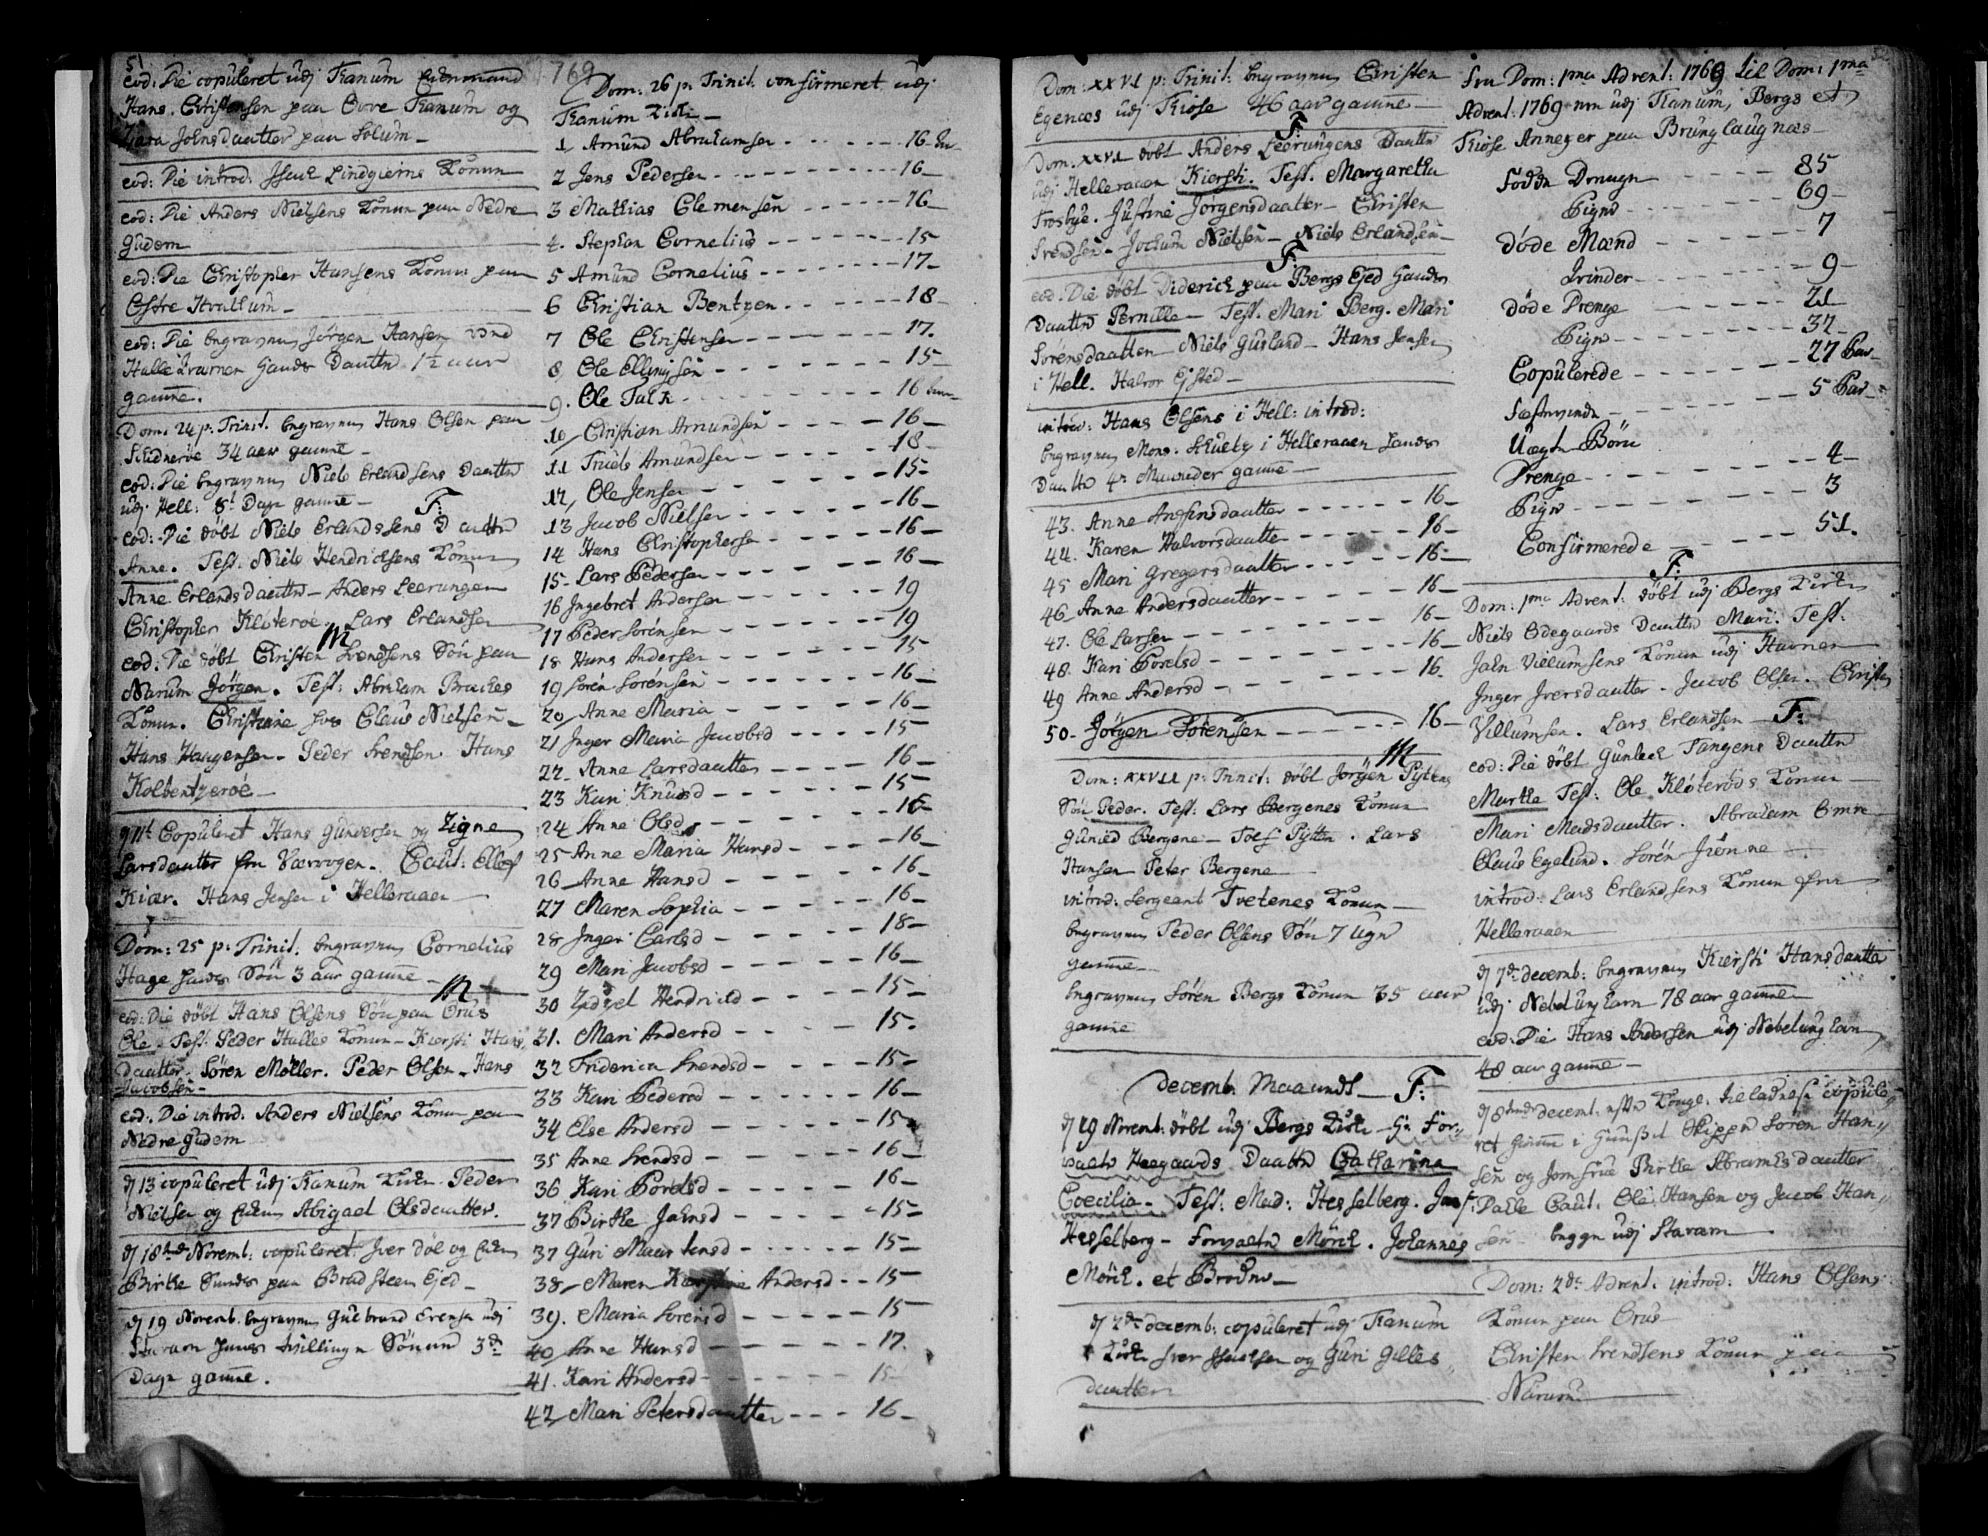 51
eod: Die copuleret udj Tanum Enkemand
Hans Christensen paa Ovre Tanum og
Zara Johnsdautter paa Solum
eod: Die introd: Isach Lindgiems Konen
eod: Die Anders Nielsens Konen paa Nedre
Gudem
eod: Die Christopher Hansens Konen paa
Østre Hvatum
eod: Die begraven Jörgen Hansen ved
Halle Qvarnen hands Dautter 1½ aar
gamme.
Dom: 24 p: Trinit. begraven Hans Olsen paa
34 aar gamme
eod: Die begraven Niels Erlandsens Dautter
udj Hell: 8t Dage gamme F:
eod: Die döbt Niels Erlandssens Dautter
Anne. Test: Niels Hendrichsens Konen
Anne Erlandsdautter Anders Leerungen
Christopher Kløteröe. Lars Erlandsen
M
eod: Die döbt Christen Svendsens Sön paa
Narum Jörgen. Test: Abraham Brackes
Konen. Christiane hos Claus Nielsen
Hans Haagensen. Peder Svendsen. Hans
Kolbentzeröe
9 11t Copuleret Hans Gunversen og Zigne
Larsdautter fra Værvogen. Caut: Ellef
Kiær. Hans Jensen i Helleraaen
Dom: 25 p: Trinit. begraven Cornelius
Hage hands Sön 3 aar gamme
M
eod: Die döbt Hans Olsens Sön paa Orus
Ole. Test: Peder Halles Konen Kiersti Hans
dautter. Sören Möller. Peder Olsen. Hans
Jacobsen
eod: Die introd: Anders Nielsens Konen paa
Nedre Gudem
d 13 copuleret udj Tanum Kirke Peder
Nielsen og Enken Abigael Olsdautter.
d 18de Novemb: copuleret Iver Döl og Enken
Birthe Sunds paa Bradsteen Ejed
d 19 Novemb. begraven Gulbrand Evensen udj
Stavarn hands tvillinger Sönner 3de
Dage gamme.
1769
Dom: 26 p: Trinit. confirmeret udj
Tanum Kirke
1 Amund Abrahamsen 16 aar
2 Jens Pedersen 16
3 Mathias Clemensen 16
4. Stephan Cornelius 15
5 Amund Cornelius 17
6 Christian Bentzen 18
7 Ole Christensen 17.
8 Ole Ellingsen 15
9. Ole Falk 16 aar
10 Christian Amundsen 16
11 Truels Amundsen 18
12 Ole Jensen 15
13 Jacob Nielsen 16
14 Hans Christophersen 16
15 Lars Pedersen 16
16 Ingebret Andersen 19
17 Peder Sorensen 19
18 Hans Andersen 15
19 Sören Sörensen 16
20 Anne Maria 16
21 Inger Maria Jacobsd 15
22 Anne Larsdautter 16
23 Kari Knudsd 15
24 Anne Olsd 16
25 Anne Maria Hansd 16
26 Anne Hansd 16
27 Maren Sophia 16
28 Inger Carlsd 18
29 Mari Jacobsd 16
30 Zidsel Hendricsd 15
31. Mari Andersd 15.
32 Friderica Svendsd 15
33 Kari Pedersd 16
34 Else Andersd 15
35 Anne Svendsd 16
36 Kari Povelsd 16
37 Birthe Jahnsd 15
37 Guri Mauritensd 15
38 Maren Kirstine Andersd 15
39. Maria Sorensd 15
40 Anne Hansd 17.
41. Kari Andersd 15
42 Mari Petersdautter 16
Dom: XXVI p: Trinit: begraven Christen
Egenæs udj Kiose 46 aar gamme
F:
Dom: XXVI döbt Anders Leerungens Dautter
udj Helleraaen Kiersti. Test. Margaretha
Frosbye. Justine Jörgensdautter Christen
Svendsen. Jochum Nielsen Niels Erlandsen
F:
eod: Die döbt Diderich paa Bergs Ejed hands
Dautter Pernille Test. Mari Berg. Mari
Sörensdautter Niels Gusland Hans Jensen
i Hell. Halvor Ejsted
introd: Hans Olsens i Hell: introd:
begraven Mons. i Helleraaen hands
Dautter 4 Maaneder gamme
43. Anne Anssensdautter 16
44. Karen Halvorsdautter 16
45 Mari Gregersdautter 16
46 Anne Andersdautter 16
47. Ole Larsen 16
48. Kari Povelsd 16
49 Anne Andersd 16.
50 Jörgen Sörensen 16
M
Dom: XXVII p: Trinit: döbt Jorgen Pyttens
Sön Peder. Test: Lars Bergenes Konen
Gunild Bergene Tolf Pytten. Lars
Hansen Peter Bergene
introd: Sergeant Tvetenes Konen
begraven Peder Olsens Sön 7 uger
gamme
begraven Sören Bergs Konen 35 aar
gamme
Decemb: Maanedt F:
d 29 Novemb: döbt udj Bergs Kirke Hr For¬
valter Heegaards Dautter Catharina
Coecilia. Test: Mad: Hesselberg. Jomf:
Hesselberg Forvalter Mörch. Johannes
Mörch. et Brodern
d 2de decemb: copuleret udj Tanum
Kirke Iver Isachsen og Guri Gilles
dautter
52
fra Dom: 1ma Advent: 1768 til Dom: 1ma
Advent: 1769 nem udj Tanum, Bergs et
Kiose Annexer paa Brunglaugnæs
fødde Drenger 85
Piger 69
døde Mænd 7
Qvinder 9
døde Drenge 21
Piger 34
Copulerede 27 Par
5 Par
Uægte Børn
Drenge 4
Piger 3
Confirmerede 51.
F:
Dom: 1ma Advent: döbt udj Bergs Kirke
Niels Odegaards Dautter Mari. Test:
Jahn Villumsens Konen udj Havnen
Inger Iversdautter. Jacob Olsen. Christen
Villumsen. Lars Erlandsen F:
eod: Die döbt Gunlech Tangens Dautter
Marthe Test: Ole Kløteröds Konen
Mari Madsdautter. Abraham Omre
Claus Egelund. Sören Frönne
introd: Lars Erlandsens Konen fra
Helleraaen
d 7de decemb: begraven Kiersti Hansdautter
udj Nebelunghavn 78 aar gamme
eod: Die Hans Andersen udj Nebelunghavn
48 aar gamme
d 8tende decemb: efter Konge: tieladnesse copule
ret hiemme i Skipper Sören Han
sen og Jomfrue Birthe Abramsdautter
Palle Caut. Ole Hansen og Jacob Han
sen begge udj Stavarn
Dom: 2de Advent. introd: Hans Olsens
Konen paa Orus
Christen Svendsens Konen paa
Narum